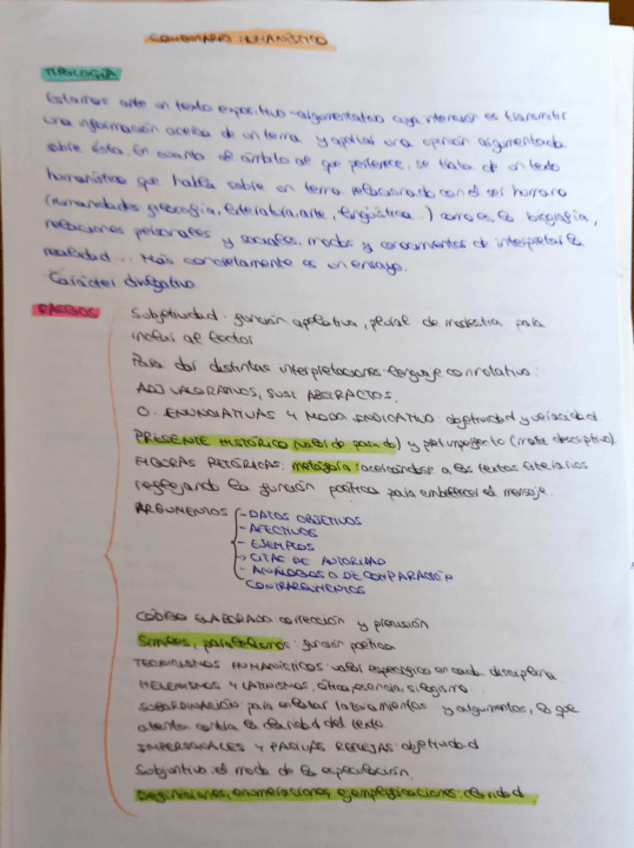 COMENTARIO HUMANÍSTICO
TIPOLOGÍA
Estamos ante un texto expositivo-argumentativo cuya intención es transmitir
una información acerca de un tema y aportar una opinión argumentada
sobre ésta. En cuanto al ámbito al que pertenece, se trata de un texto
humanístico que habla sobre un tema relacionado con el ser humano
(humanidades geografía, literatura, arte, lingüística...) como es la biografía,
relaciones personales y sociales, modos y conocimientos de interpretar la
realidad... Más concretamente es un ensayo.
Carácter divulgativo
RASGOS
Subjetividad: función apelativa, plural de modestia para
incluir al lector
Para dar distintas interpretaciones-lenguaje connotativo:
ADJ VALORATIVOS, SUST ABSTRACTOS.
O. ENUNCIATIVAS Y MODO INDICATIVO: objetividad y veracidad.
PRESENTE HISTÓRICO (valor de pasado) y pret imperfecto (matiz descriptivo).
FIGURAS RETÓRICAS: metáfora: acercándose a los textos literarios
reflejando la función poética para embellecer el mensaje.
ARGUMENTOS
- DATOS OBJETIVOS
- AFECTIVOS
- EJEMPLOS
-> CITAS DE AUTORIDAD
- ANÁLOGOS O DE COMPARACIÓN
CONTRARGUMENTOS
CÓDIGO ELABORADO: corrección y precisión
Símiles, paralelismos: función poética
TECNICISMOS HUMANÍSTICOS: valor específico en cada disciplina
HELENISMOS Y LATINISMOS: ética, esencia, silogismo.
SUBORDINACIÓN para enlazar razonamientos y argumentos, lo que
atenta contra la claridad del texto.
IMPERSONALES Y PASIVAS REFLEJAS: objetividad
Subjuntivo: el modo de la especulación.
Definiciones, enumeraciones, ejemplificaciones: claridad.